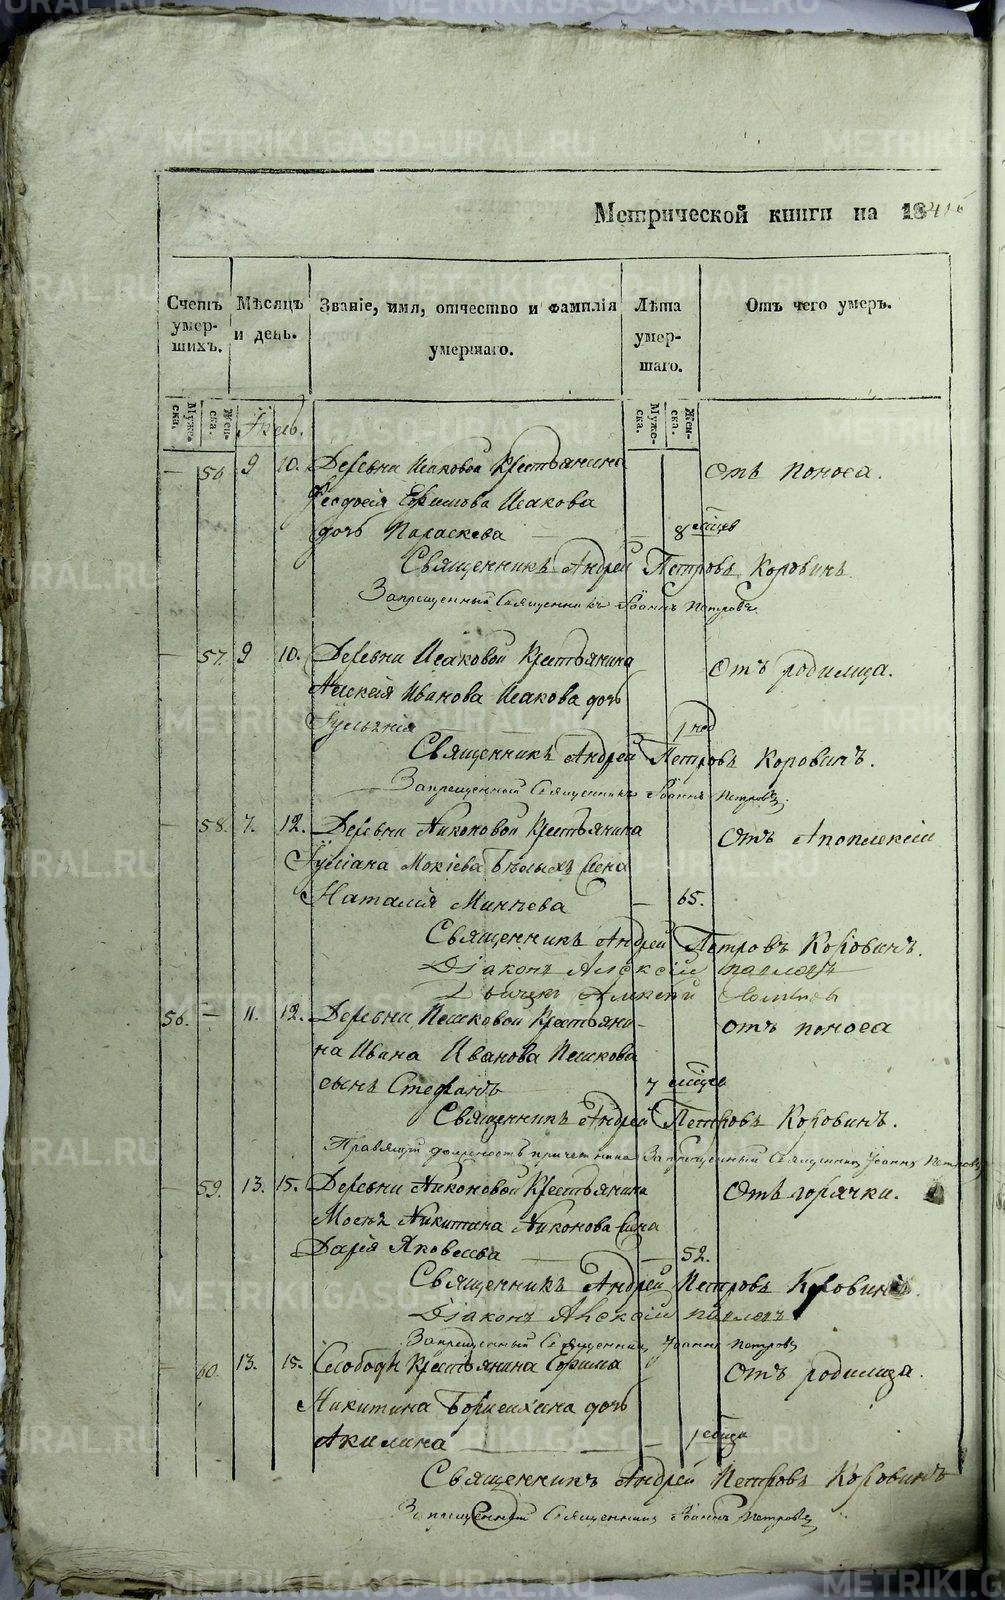 Метрической книги на 1841
Счетъ умер-шихъ.
Мѣсяцъ и день.
Званіе, имя, отчество и фамилія умершаго.
Лѣта умер-шаго.
Отъ чего умеръ.
Муже-ска.
Жен-ска.
Муже-ска.
Жен-ска.
— 56 9 10. Деревни Исаковой Крестьянина Отъ поноса.
Феодосія Ефимова Исакова
дочь Параскева — 8 мѣсцев
Священникъ Андрей Петровъ Коровинъ
Запрещенный Священникъ Іоаннъ Петровъ
— 57. 9 10. Деревни Исаковой Крестьянина Отъ родимца.
Алексія Иванова Исакова дочь
Іуліанія 1 нед
Священникъ Андрей Петровъ Коровинъ.
Запрещенный Священникъ Іоаннъ Петровъ
— 58. 7. 12. Деревни Никоновой Крестьянина Отъ Апоплексіи
Іуліана Мокіева Бѣлыхъ жена
Наталія Минѣева — 65.
Священникъ Андрей Петровъ Коровинъ.
Діаконъ Алексій
56. — 11. 12. Деревни Пешковой Крестьяни- отъ поноса
на Ивана Иванова Пешкова
сынъ Стефанъ 7 мѣсцев
Священникъ Андрей Петровъ Коровинъ.
Правящій должность причетника Запрещенный Священник Іоаннъ Петровъ
— 59. 13. 15. Деревни Никоновой Крестьянина Отъ горячки.
Никитина Никонова жена
Дарія Яковлева — 52.
Священникъ Андрей Петровъ Коровинъ.
Діаконъ Алексій
Запрещенный Священник Іоаннъ Петровъ
— 60. 13. 15. Слободы Крестьянина Ефима Отъ родимца.
Никитина Борисихина дочь
Акилина — 1 мѣсца
Священникъ Андрей Петровъ Коровинъ
Запрещенный Священник Іоаннъ Петровъ
METRIKI.GASO-URAL.RU